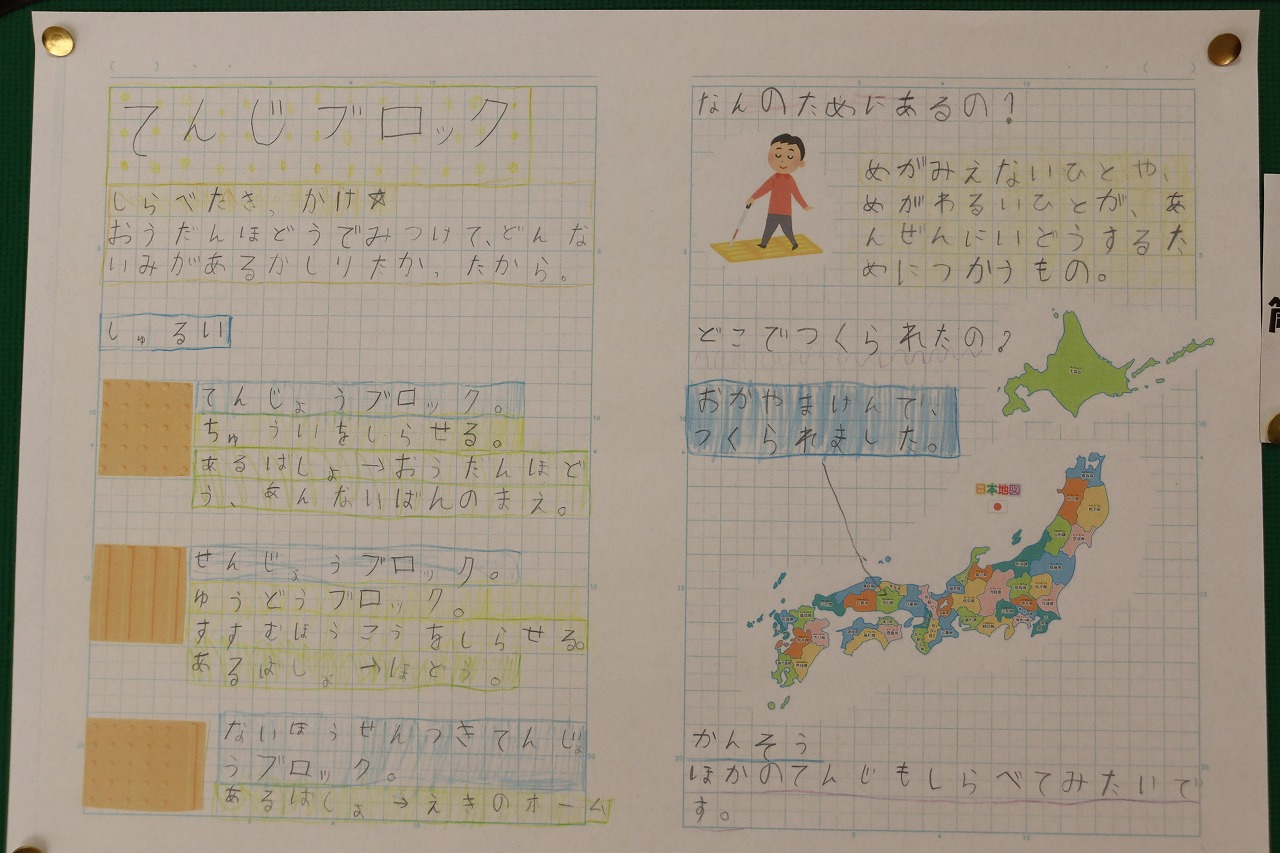 てんじブロック
しらべたきっかけ☆
おうだんほどうでみつけて、どんな
いみがあるかしりたかったから。
しゅるい
てんじょうブロック。
ちゅういをしらせる。
あるばしょ→おうだんほど
う、あんないばんのまえ。
せんじょうブロック。
ゆうどうブロック。
すすむほうこうをしらせる。
あるばしょ→ほどう。
ないほうせんつきてんじょ
うブロック。
あるばしょ→えきのホーム
なんのためにあるの?
めがみえないひとや、
めがわるいひとが、あ
んぜんにいどうするた
めにつかうもの。
どこでつくられたの?
おかやまけんで、
つくられました。
日本地図
かんそう
ほかのてんじもしらべてみたいで
す。